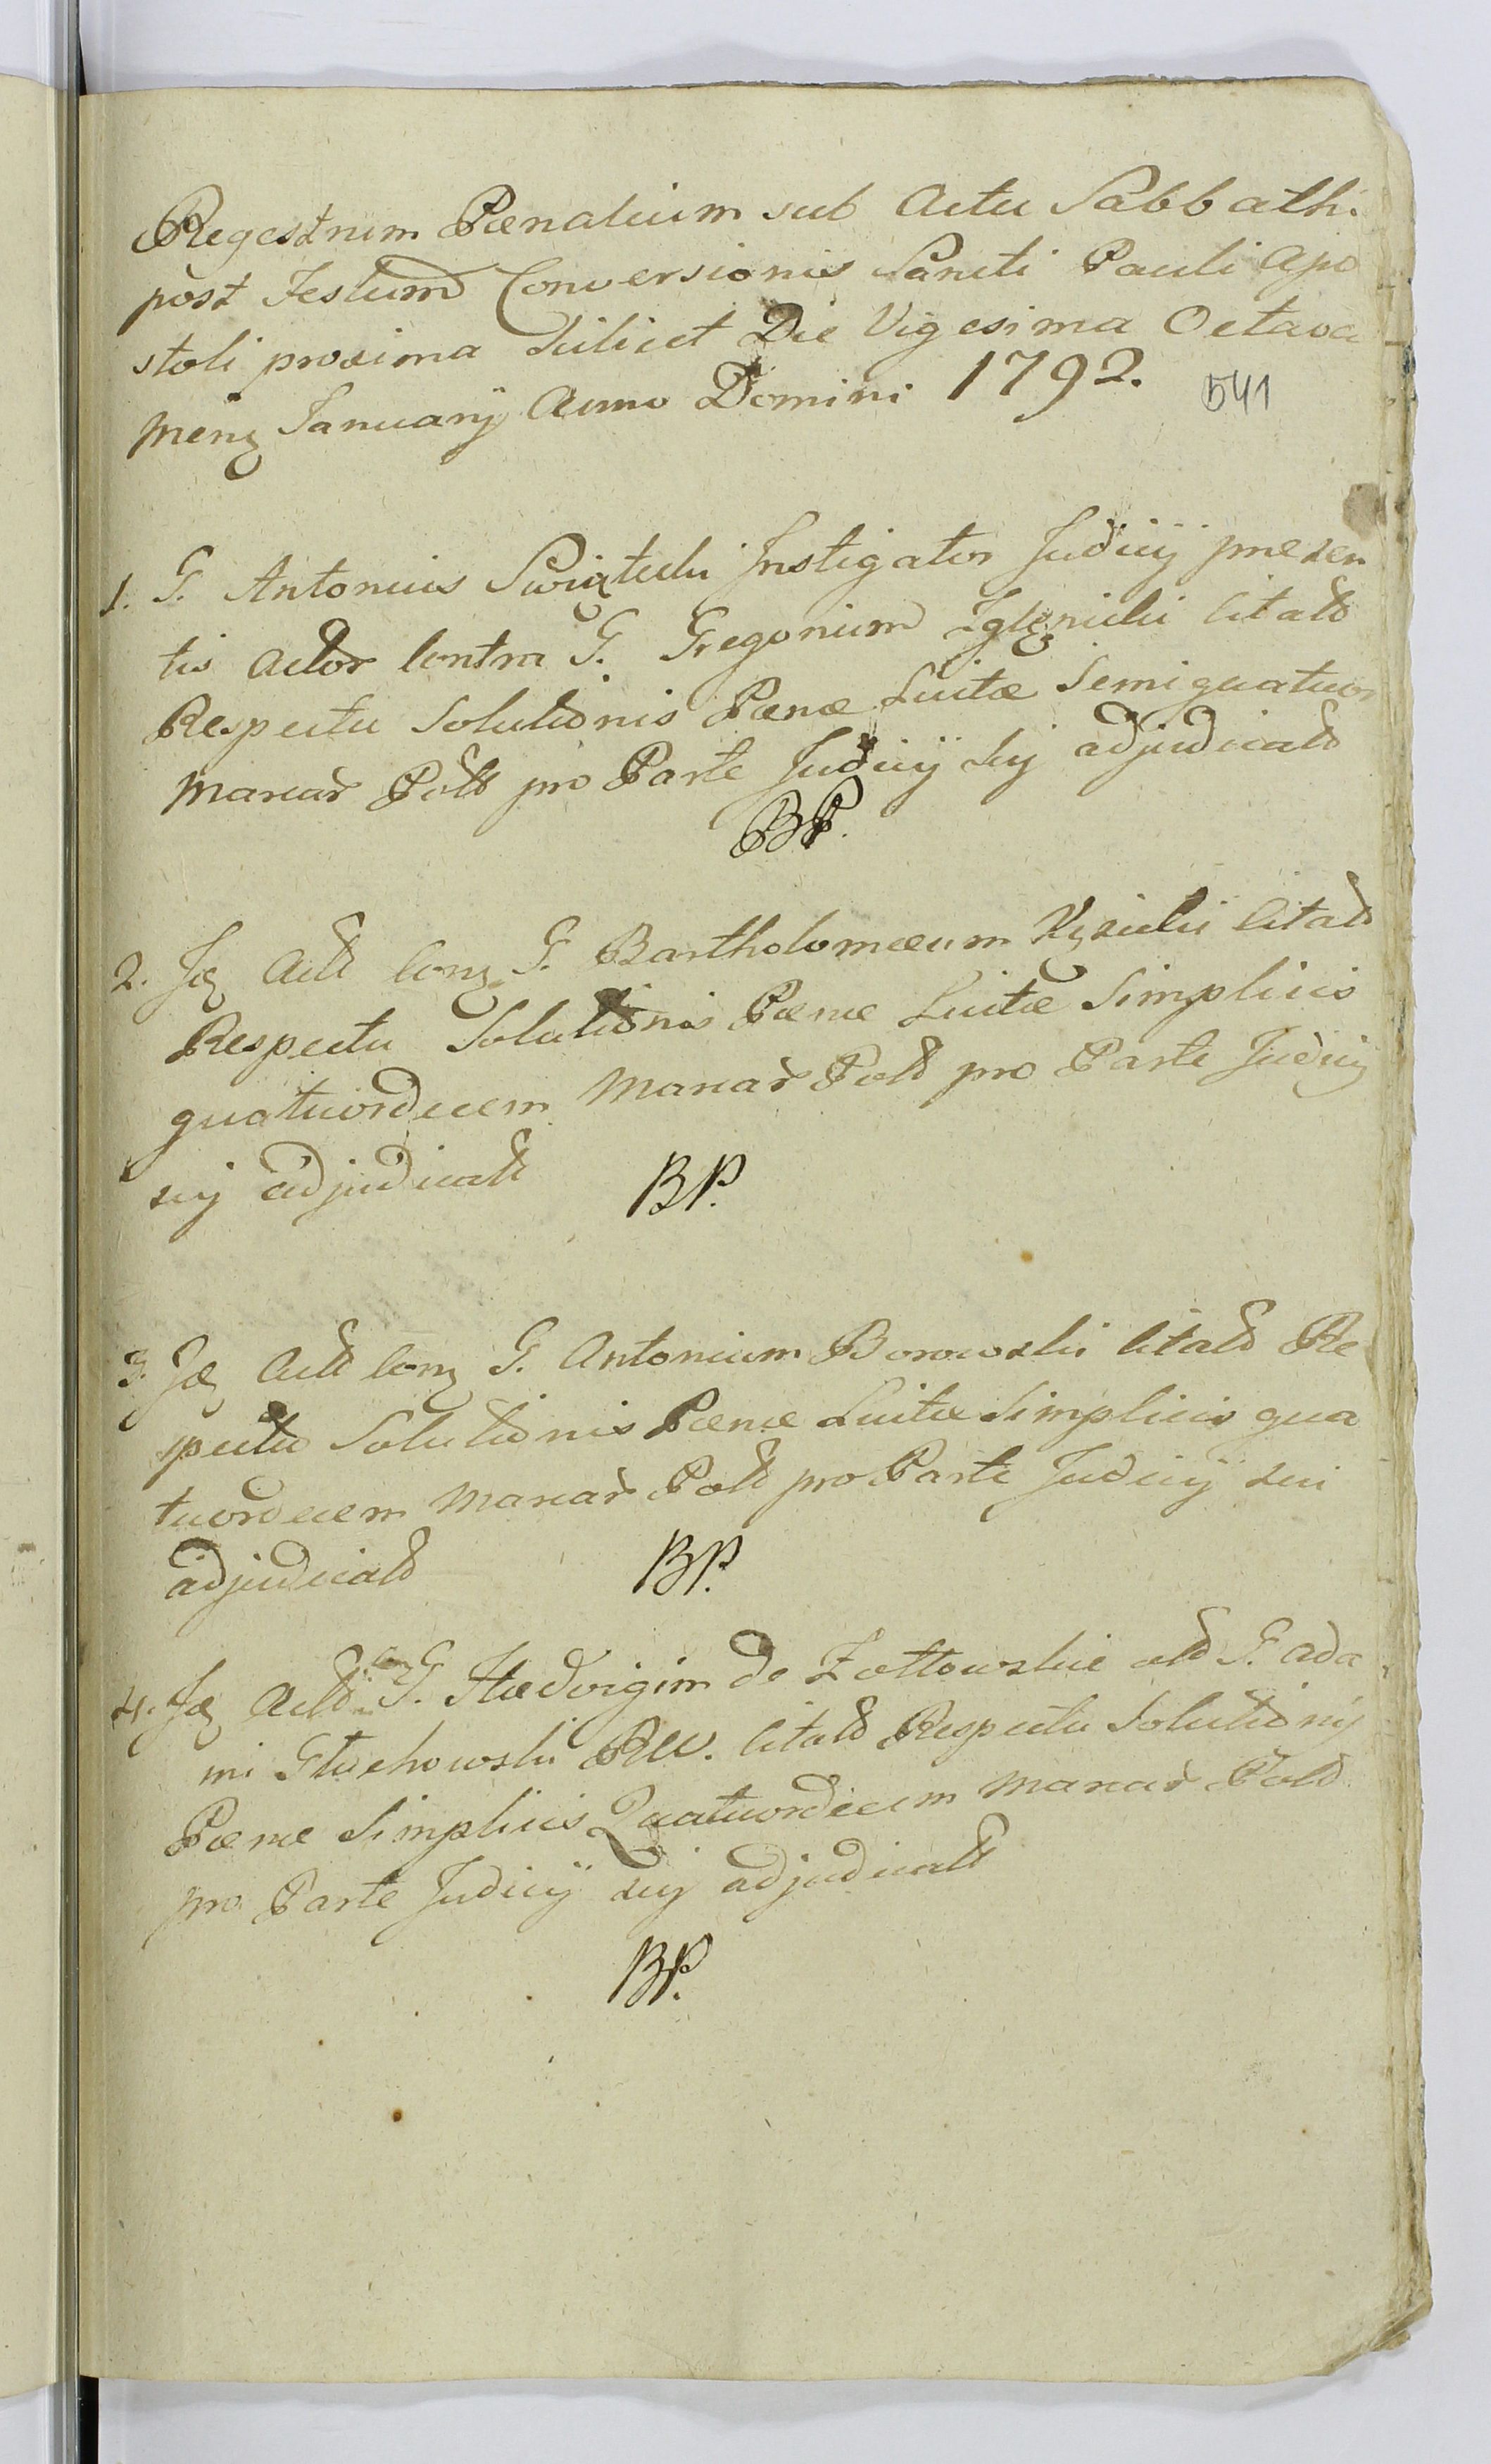 Regestrum Pœnalium sub Actu Sabbathi
post Festum Conversionis Sancti Pauli Apo
stoli proxima Scilicet Die Vigesima Octava
Menz Januarij Anno Domini 1792.
541
1. G. Antonius Swiątecki Instigator Judicij præsen
tis Actor Contra G. Gregorium Zglenicki Citatt
Respectu Solutionis Pœnæ Luitæ Semiquatuor
Marcar Poll pro Parte Judicij sui adjudicatt
BP.
2. Id Actt Conz G. Bartholomæum Citatt
Respectu Solutionis Pœnæ Luitæ Simplicis
quatuordecem Marcar Poll pro Parte Judicij
sui adjudicatt BP.
3. Id Actt Conz G. Antonium Borowski Citatt Re
spectu Solutionis Pœnæ Luitæ Simplicis qua
tuordecem Marcar Poll pro Parte Judicij sui
adjudicatt BP.
4. Id Actt Conz G. Hædvigim de Zołtowskie G. Ada
mi Głuchowski Citatt Respectu Solutionis
Pœnæ Simplicis Quatuordecim Marcar Poll
pro Parte Judicij sui adjudicatt
BP.